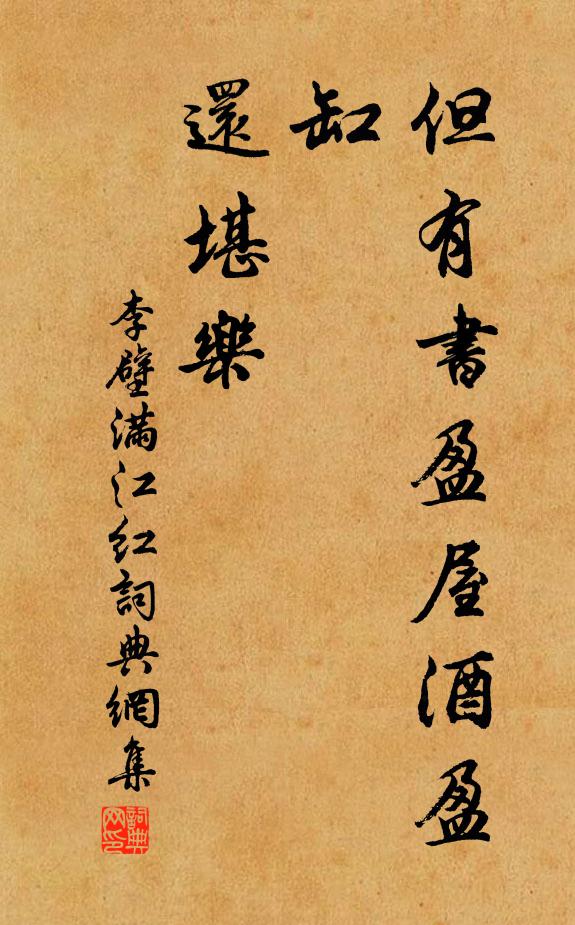 但有書盈屋酒盈
缸
還堪樂
李壁滿江紅詞典網集
詞典
网印